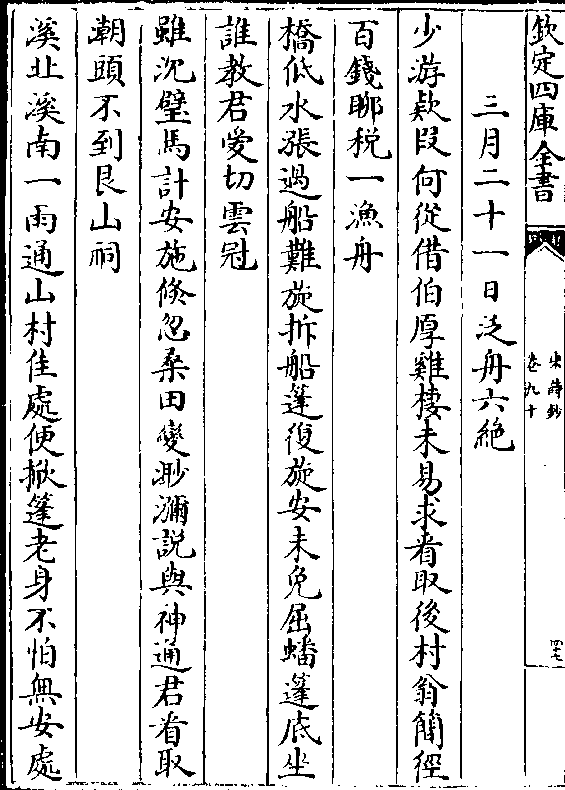 欽定四庫全書
宋詩鈔
卷九十
四七
三月二十一日泛舟六絶
少游欵段何從借伯厚雞棲未易求看取後村翁簡徑
百錢聊税一漁舟
橋低水漲過船難旋拆船篷復旋安未免屈蟠篷底坐
誰教君愛切雲冠
雖沉璧馬計安施倐忽桑田變渺瀰説與神通君看取
潮頭不到艮山祠
溪北溪南一雨通山村佳處便掀篷老身不怕無安處